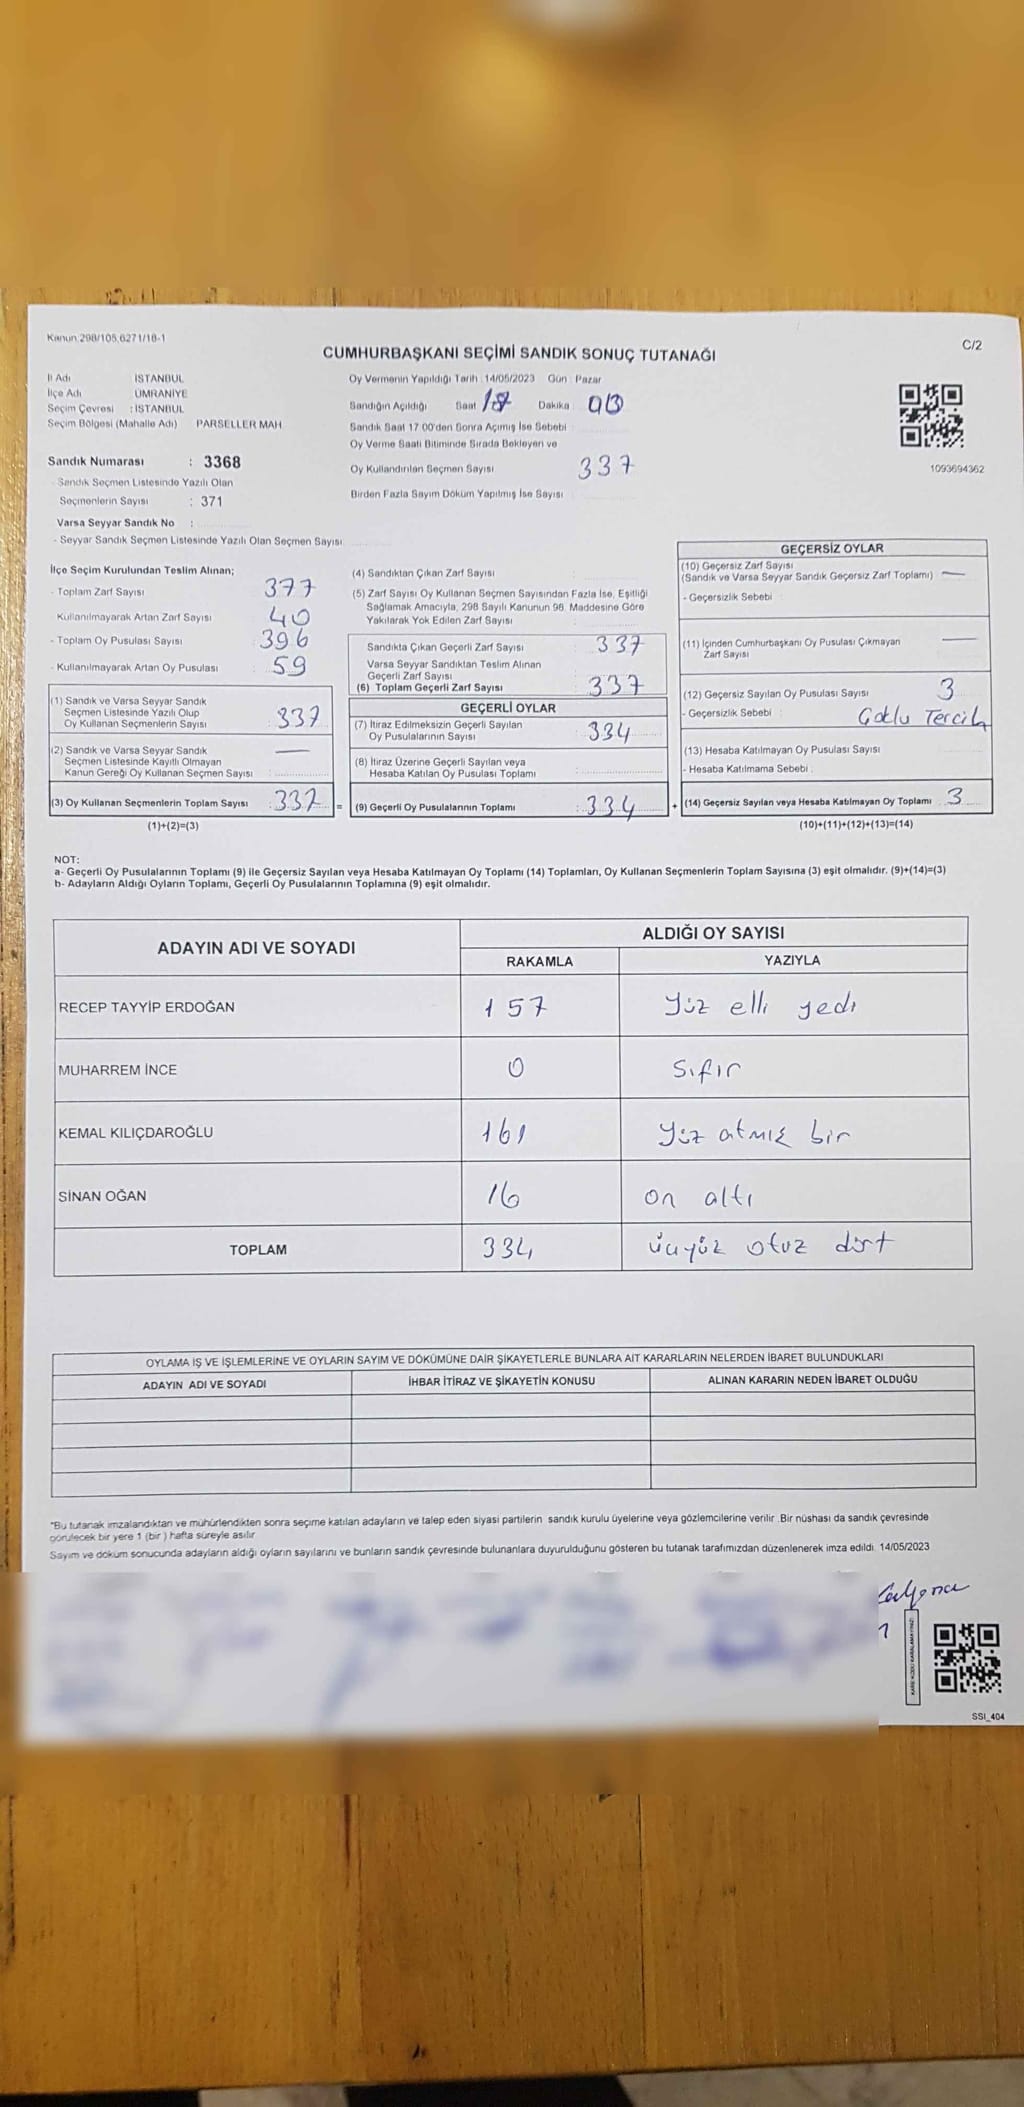 Kanun:298/105,6271/18-1
C/2
CUMHURBAŞKANI SEÇİMİ SANDIK SONUÇ TUTANAĞI
İl Adı İSTANBUL
İlçe Adı ÜMRANİYE
Seçim Çevresi : İSTANBUL
Seçim Bölgesi (Mahalle Adı) PARSELLER MAH
Sandık Numarası : 3368
- Sandık Seçmen Listesinde Yazılı Olan
Seçmenlerin Sayısı : 371
Varsa Seyyar Sandık No :
- Seyyar Sandık Seçmen Listesinde Yazılı Olan Seçmen Sayısı
Oy Vermenin Yapıldığı Tarih 14/05/2023 Gün : Pazar
Sandığın Açıldığı Saat Dakika
Sandık Saat 17:00'den Sonra Açımış İse Sebebi
Oy Verme Saati Bitiminde Sırada Bekleyen ve
Oy Kullandırılan Seçmen Sayısı 337
Birden Fazla Sayım Döküm Yapılmış İse Sayısı
1093694362
İlçe Seçim Kurulundan Teslim Alınan;
- Toplam Zarf Sayısı 377
Kullanılmayarak Artan Zarf Sayısı 40
- Toplam Oy Pusulası Sayısı 396
- Kullanılmayarak Artan Oy Pusulası 59
(1) Sandık ve Varsa Seyyar Sandık
Seçmen Listesinde Yazılı Olup
Oy Kullanan Seçmenlerin Sayısı 337
(2) Sandık ve Varsa Seyyar Sandık
Seçmen Listesinde Kayıtlı Olmayan
Kanun Gereği Oy Kullanan Seçmen Sayısı —
(3) Oy Kullanan Seçmenlerin Toplam Sayısı 337 =
(1)+(2)=(3)
(4) Sandıktan Çıkan Zarf Sayısı
(5) Zarf Sayısı Oy Kullanan Seçmen Sayısından Fazla İse, Eşitliği
Sağlamak Amacıyla, 298 Sayılı Kanunun 98. Maddesine Göre
Yakılarak Yok Edilen Zarf Sayısı
Sandıkta Çıkan Geçerli Zarf Sayısı 337
Varsa Seyyar Sandıktan Teslim Alınan
Geçerli Zarf Sayısı
(6) Toplam Geçerli Zarf Sayısı 337
GEÇERLİ OYLAR
(7) İtiraz Edilmeksizin Geçerli Sayılan
Oy Pusulalarının Sayısı 334
(8) İtiraz Üzerine Geçerli Sayılan veya
Hesaba Katılan Oy Pusulası Toplamı
(9) Geçerli Oy Pusulalarının Toplamı 334 +
GEÇERSİZ OYLAR
(10) Geçersiz Zarf Sayısı
(Sandık ve Varsa Seyyar Sandık Geçersiz Zarf Toplamı) —
- Geçersizlik Sebebi :
(11) İçinden Cumhurbaşkanı Oy Pusulası Çıkmayan
Zarf Sayısı —
(12) Geçersiz Sayılan Oy Pusulası Sayısı 3
- Geçersizlik Sebebi : Çoklu Tercih
(13) Hesaba Katılmayan Oy Pusulası Sayısı
- Hesaba Katılmama Sebebi :
(14) Geçersiz Sayılan veya Hesaba Katılmayan Oy Toplamı 3
(10)+(11)+(12)+(13)=(14)
NOT:
a- Geçerli Oy Pusulalarının Toplamı (9) ile Geçersiz Sayılan veya Hesaba Katılmayan Oy Toplamı (14) Toplamları, Oy Kullanan Seçmenlerin Toplam Sayısına (3) eşit olmalıdır. (9)+(14)=(3)
b- Adayların Aldığı Oyların Toplamı, Geçerli Oy Pusulalarının Toplamına (9) eşit olmalıdır.
ADAYIN ADI VE SOYADI
ALDIĞI OY SAYISI
RAKAMLA YAZIYLA
RECEP TAYYİP ERDOĞAN 157 Yüz elli yedi
MUHARREM İNCE 0 Sıfır
KEMAL KILIÇDAROĞLU 161 Yüz atmış bir
SİNAN OĞAN 16 on altı
TOPLAM 334 üçyüz otuz dört
OYLAMA İŞ VE İŞLEMLERİNE VE OYLARIN SAYIM VE DÖKÜMÜNE DAİR ŞİKAYETLERLE BUNLARA AİT KARARLARIN NELERDEN İBARET BULUNDUKLARI
ADAYIN ADI VE SOYADI İHBAR İTİRAZ VE ŞİKAYETİN KONUSU ALINAN KARARIN NEDEN İBARET OLDUĞU
*Bu tutanak imzalandıktan ve mühürlendikten sonra seçime katılan adayların ve talep eden siyasi partilerin sandık kurulu üyelerine veya gözlemcilerine verilir. Bir nüshası da sandık çevresinde
görülecek bir yere 1 (bir) hafta süreyle asılır
Sayım ve döküm sonucunda adayların aldığı oyların sayılarını ve bunların sandık çevresinde bulunanlara duyurulduğunu gösteren bu tutanak tarafımızdan düzenlenerek imza edildi. 14/05/2023
SSI_404